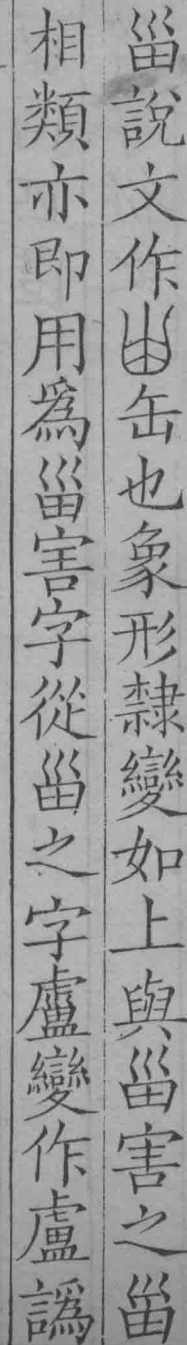 甾說文作𠙹缶也象形隸變如上與甾害之甾
相類亦即用爲甾害字從甾之字盧變作盧譌